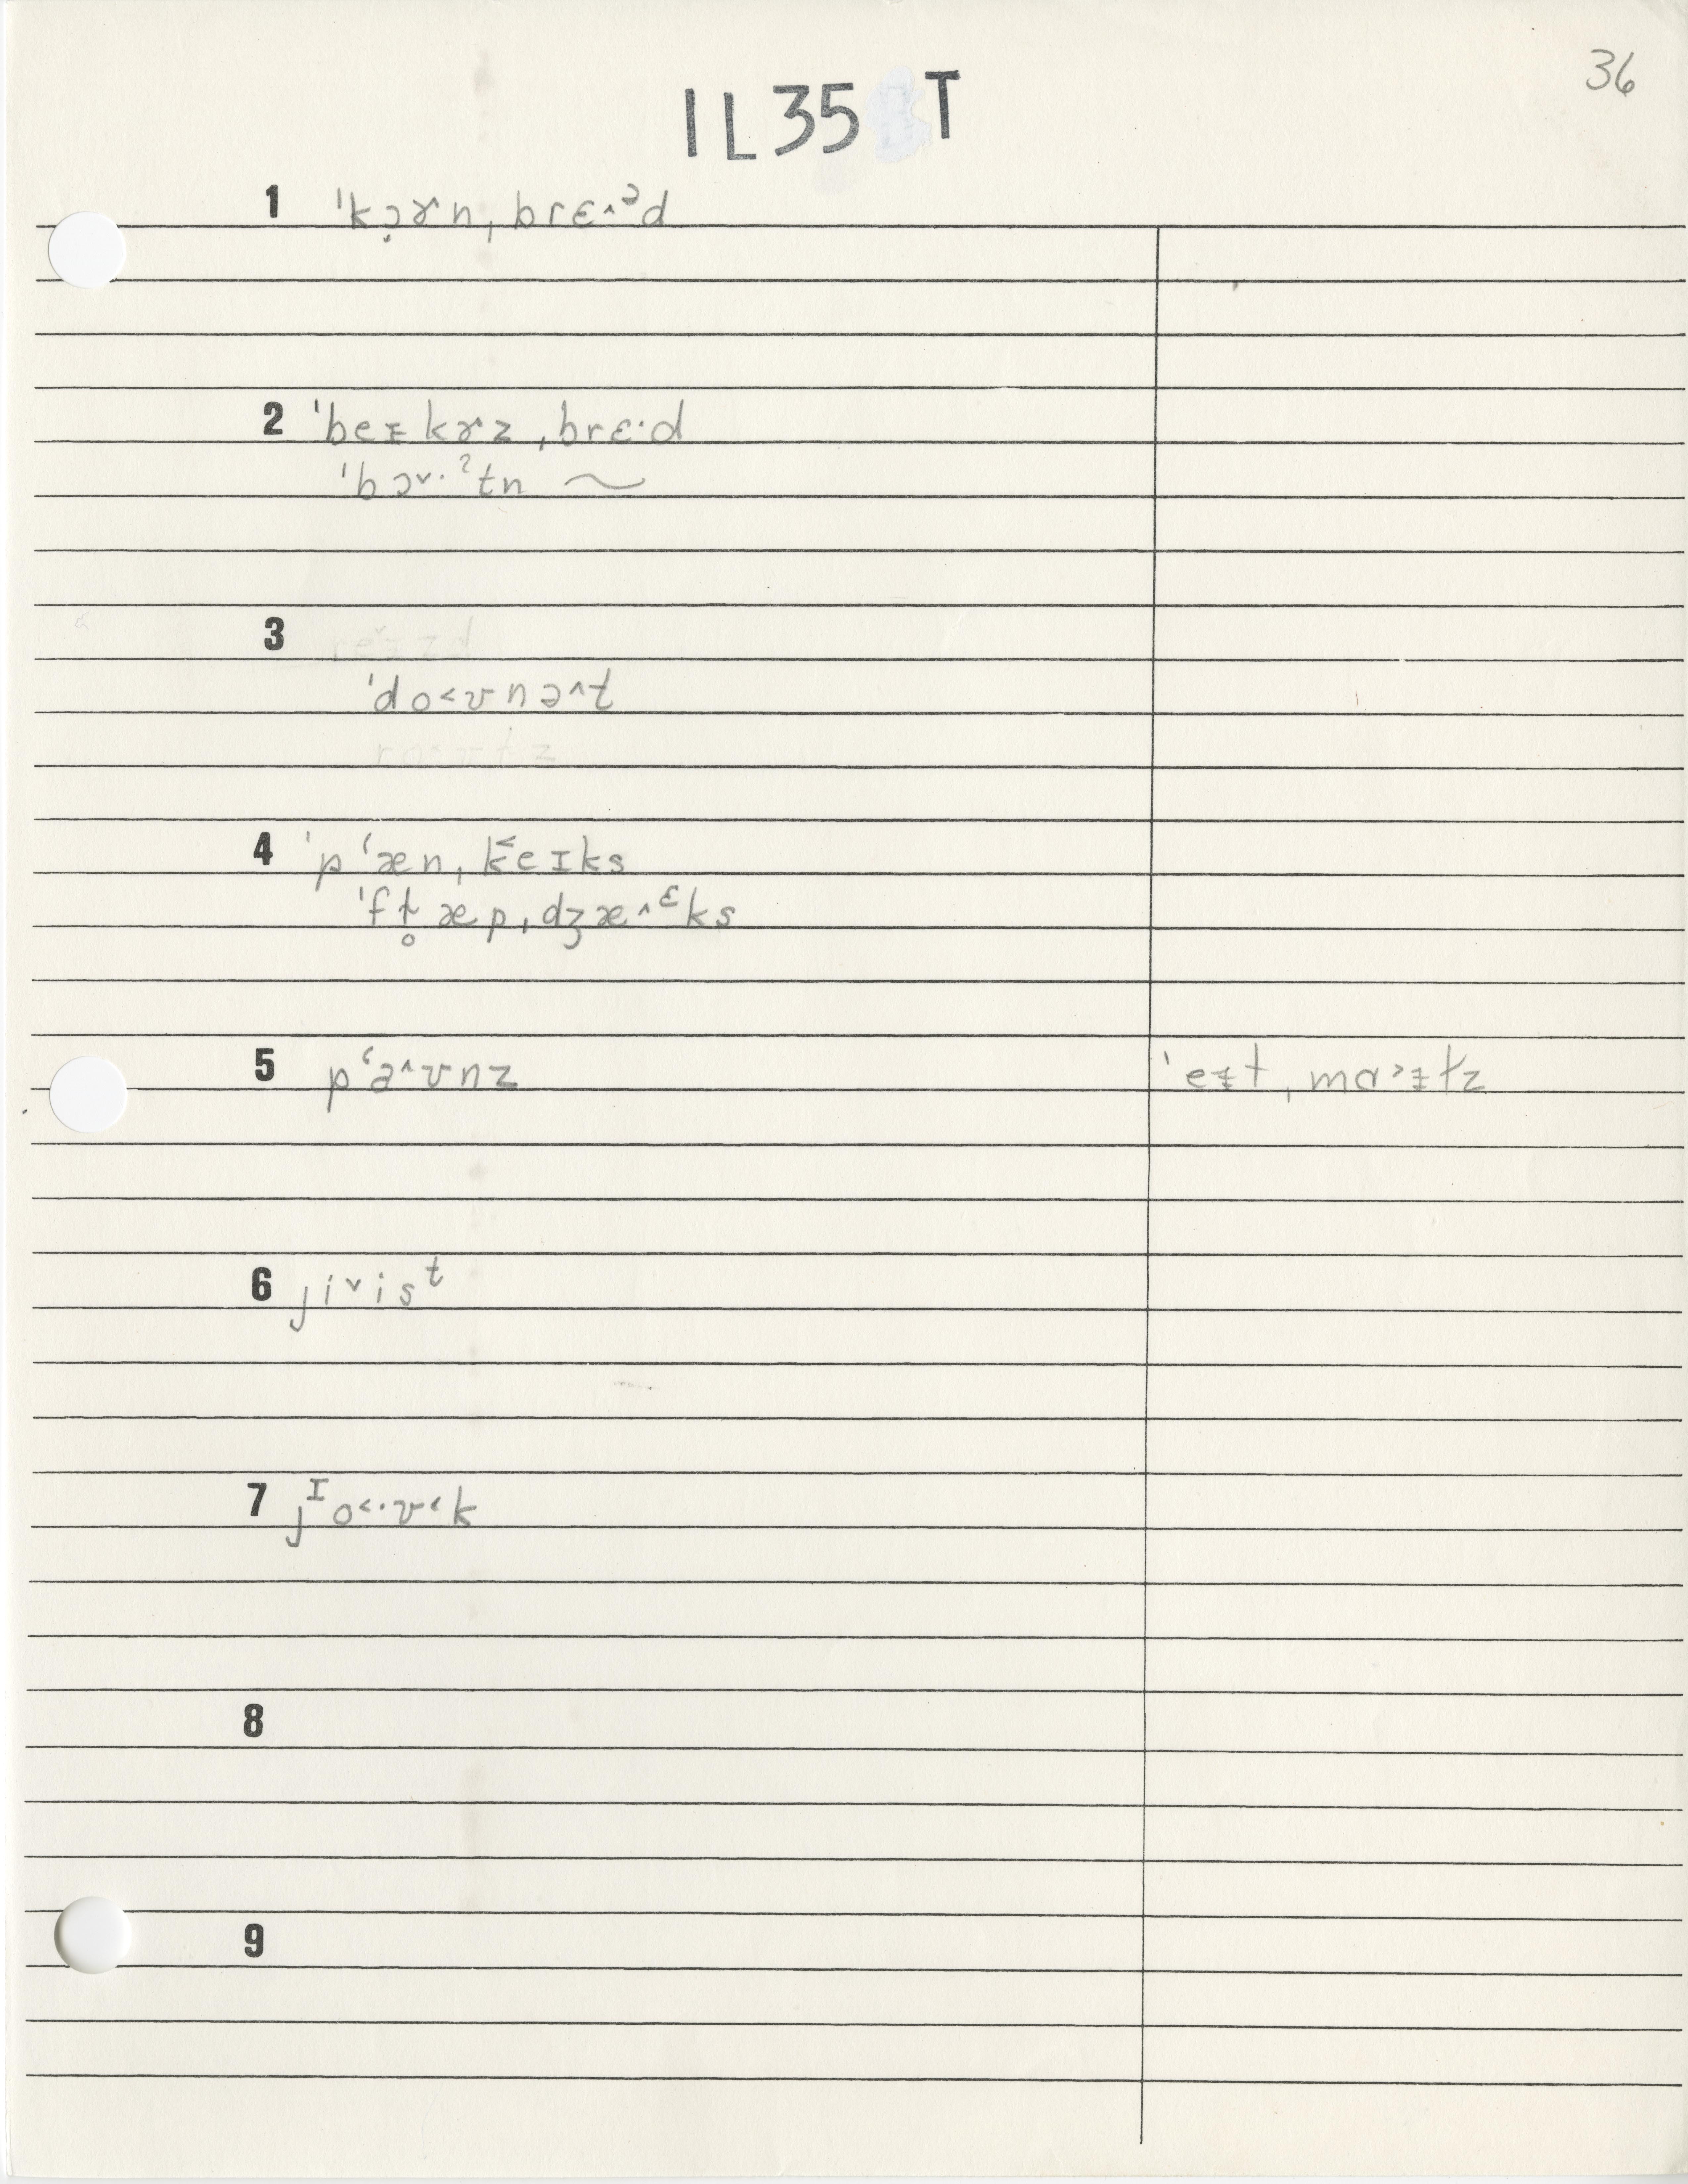 36
IL35 T
1 ˈkɔ̣ɚn ˌbrɛ˄ᵊd
2 ˈbeᵻkɚz ˌbrɛ·d
ˈbɔ˅·ˀtn ~
3
ˈdo˂ʊnə˄t
4 ˈpʻæn ˌk˂eɪks
ˈfɫ̥æp ˌdʒæ˄ᵋks
5 pʻa˄ʊnz ˈeᵻt ˌmɑ˃ᵻɫz
6 ji˅isᵗ
7 jᴵo˂·ʊ˂k
8
9